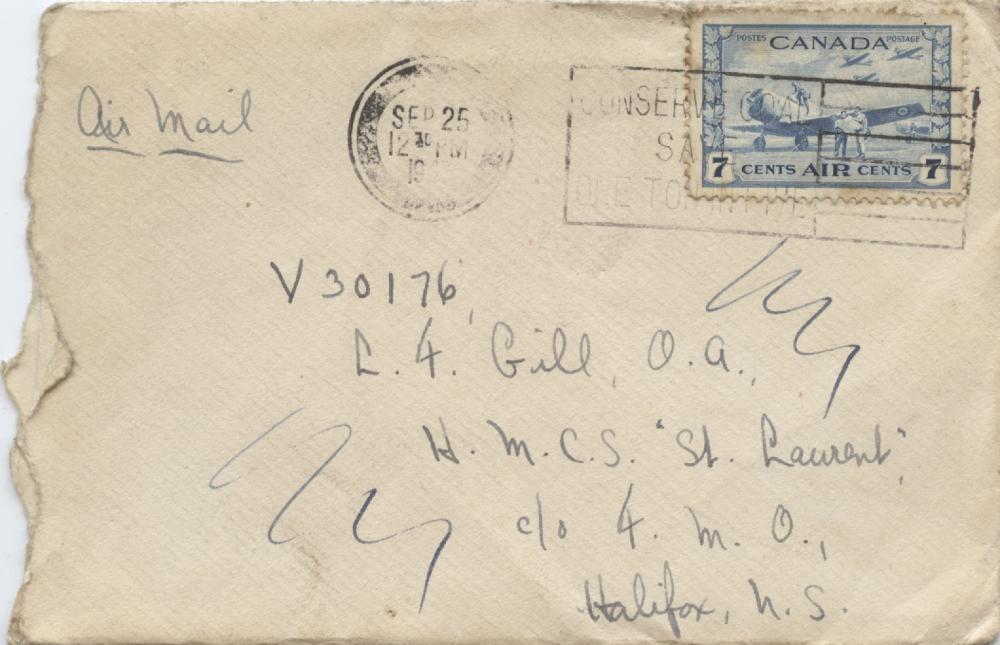 POSTES CANADA POSTAGE
7 CENTS AIR CENTS 7
Air Mail
SEP 25
12 30 PM
19
CONSERVE COAL
SA
ONE TON IN FIVE
V 30176,
L. F. Gill, O.A.,
H.M.C.S. "St. Laurent",
c/o F.M.O.,
Halifax, N.S.